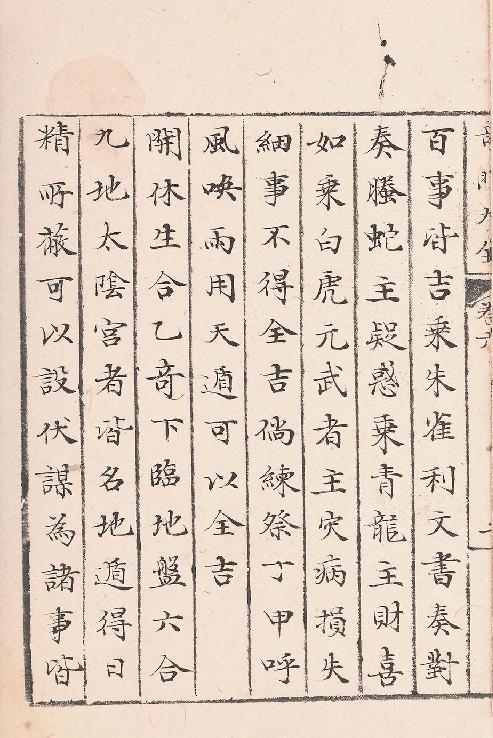 百事皆吉乗朱雀利文書奏對
奏螣蛇主疑惑乗青龍主財喜
如乗白虎元武者主灾病損失
細事不得全吉倘練祭丁甲呼
風喚雨用天遁可以全吉
開休生合乙竒下臨地盤六合
九地太陰宮者皆名地遁得日
精所蔽可以設伏謀為諸事皆